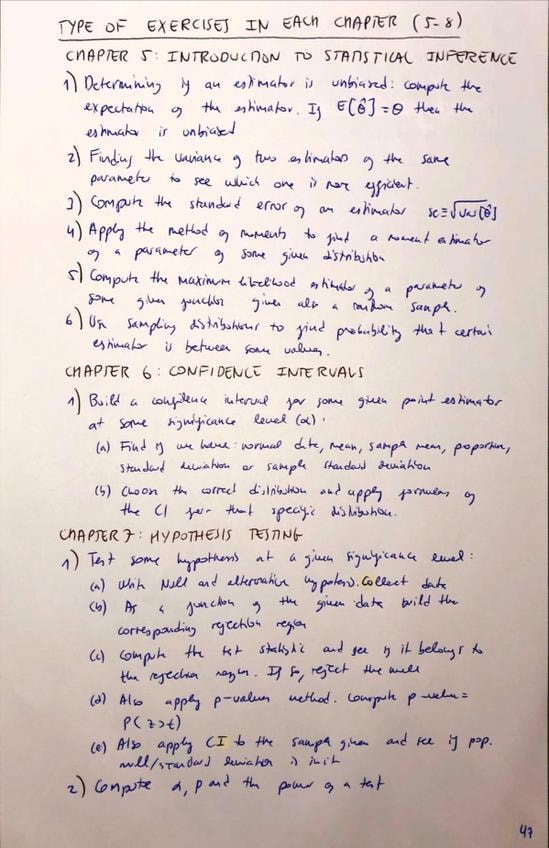 TYPE OF EXERCISES IN EACH CHAPTER (5-8)
CHAPTER 5: INTRODUCTION TO STATISTICAL INFERENCE
1) Determining if an estimator is unbiased: compute the
expectation of the estimator. If E[θ̂] = θ then the
estimator is unbiased
2) Finding the variance of two estimators of the same
parameter to see which one is more efficient.
3) Compute the standard error of an estimator se = √Var[θ̂]
4) Apply the method of moments to find a moment estimator
of a parameter of some given distribution
5) Compute the maximum likelihood estimator of a parameter of
some given function given also a random sample.
6) Use sampling distributions to find probability that certain
estimator is between some values.
CHAPTER 6: CONFIDENCE INTERVALS
1) Build a confidence interval for some given point estimator
at some significance level (α).
(a) Find if we have: normal data, mean, sample mean, proportion,
standard deviation or sample standard deviation
(b) Choose the correct distribution and apply formulas of
the CI for that specific distribution.
CHAPTER 7: HYPOTHESIS TESTING
1) Test some hypothesis at a given significance level:
(a) Write Null and alternative hypotesis. Collect data
(b) As a function of the given data build the
corresponding rejection region
(c) Compute the test statistic and see if it belongs to
the rejection region. If so, reject the null
(d) Also apply p-values method. Compute p-value =
P(z>t)
(e) Also apply CI to the sample given and see if pop.
null/standard deviation is in it
2) Compute α, β and the power of a test
47